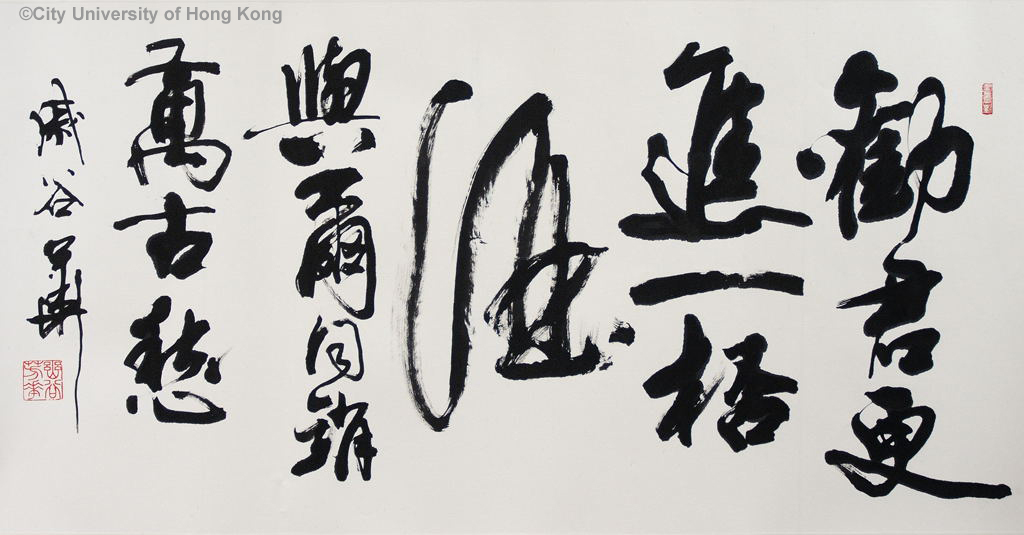 ©City University of Hong Kong
勸君更
進一桮
酒
與爾同銷
萬古愁
戚谷華